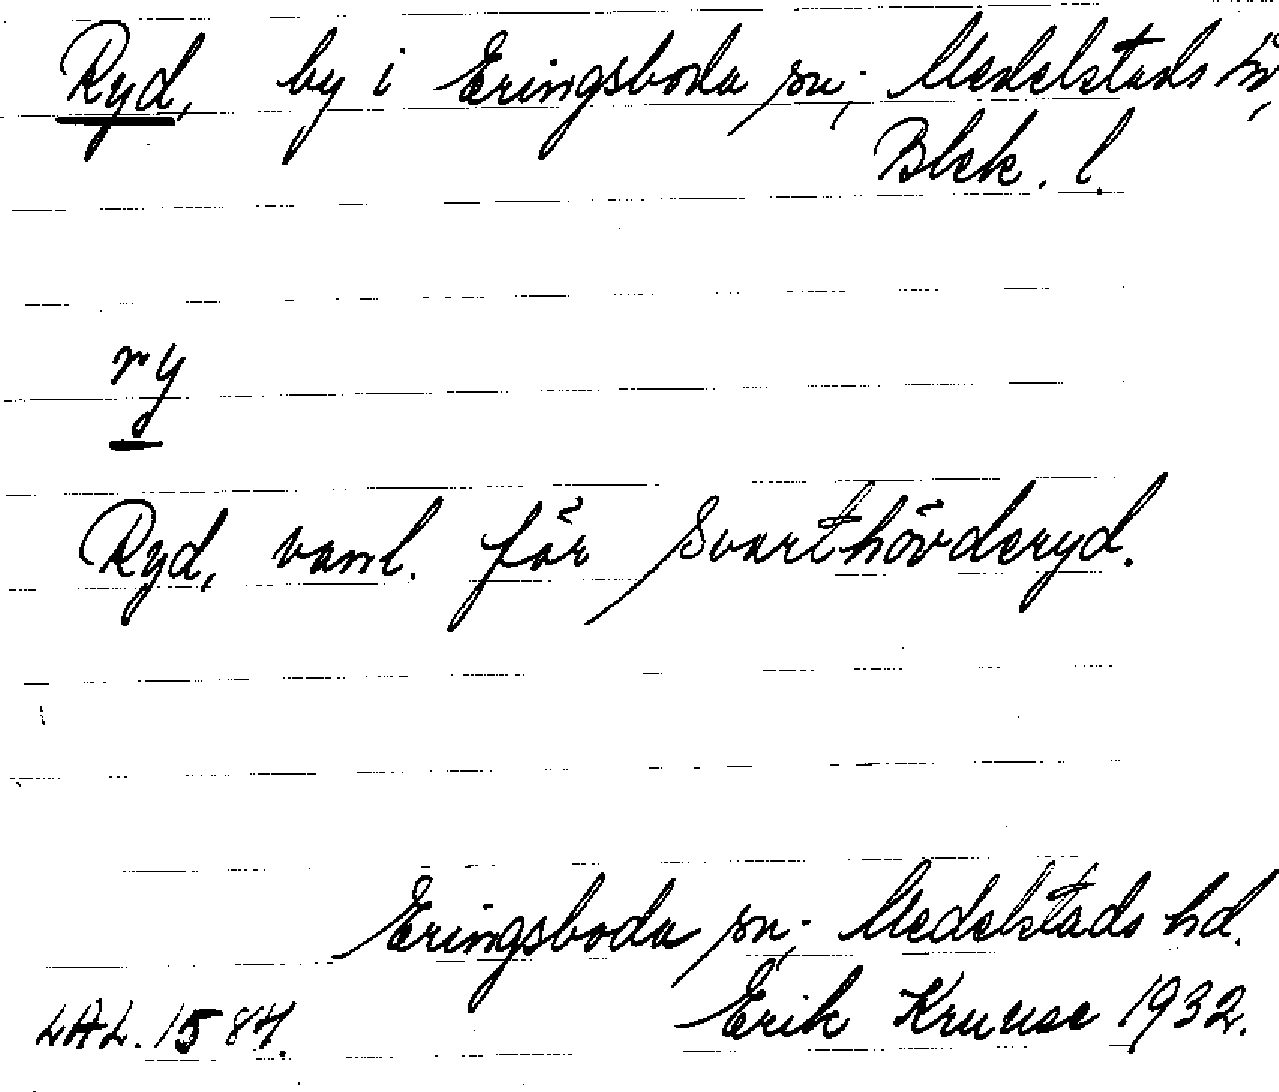 Ryd, by i Eringsboda sn; Medelstads hd,
Blek. l.
ry
Ryd, vanl. för Svarthövderyd.
Eringsboda sn; Medelstads hd.
LAL. 1584. Erik Kruuse 1932.